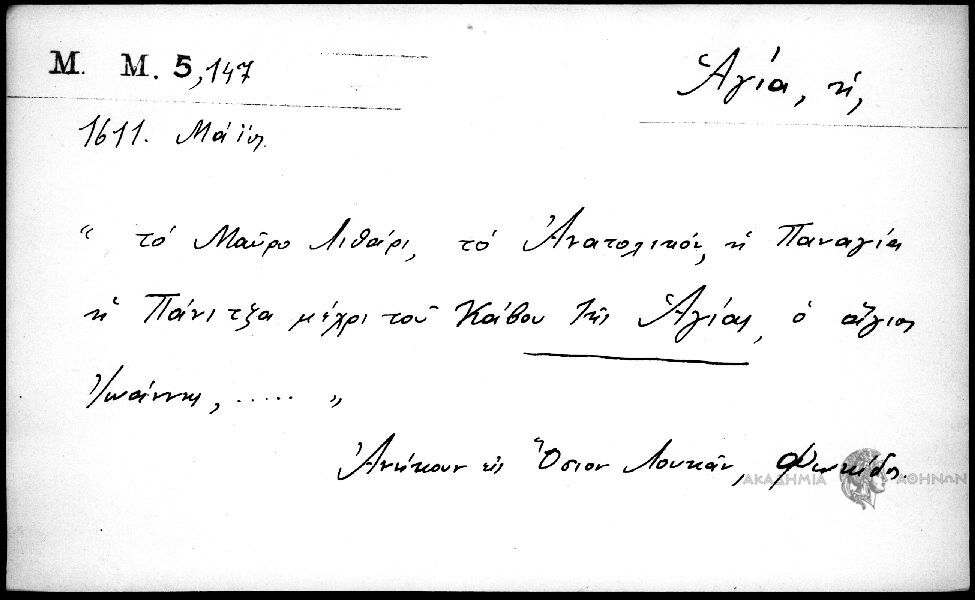 Μ. Μ. 5,147
Ἁγία, ἡ,
1611. Μάϊος.
“ τό Μαῦρο Λιθάρι, τό Ἀνατολικόν, ἡ Παναγία
ἡ Πάνιτζα μέχρι τοῦ Κάβου τῆς Ἁγίας, ὁ ἅγιος
Ἰωάννης, ..... „
Ἀνῆκον εἰς Ὅσιον Λουκᾶν, Φωκίδος.
ΑΚΑΔΗΜΙΑ ΑΘΗΝΩΝ